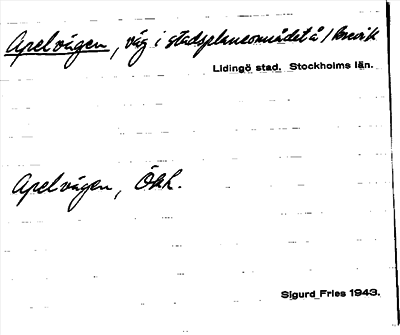 Apelvägen, väg i stadsplaneområdet å Brevik
Lidingö stad. Stockholms län.
Apelvägen, Ökk.
Sigurd Fries 1943.